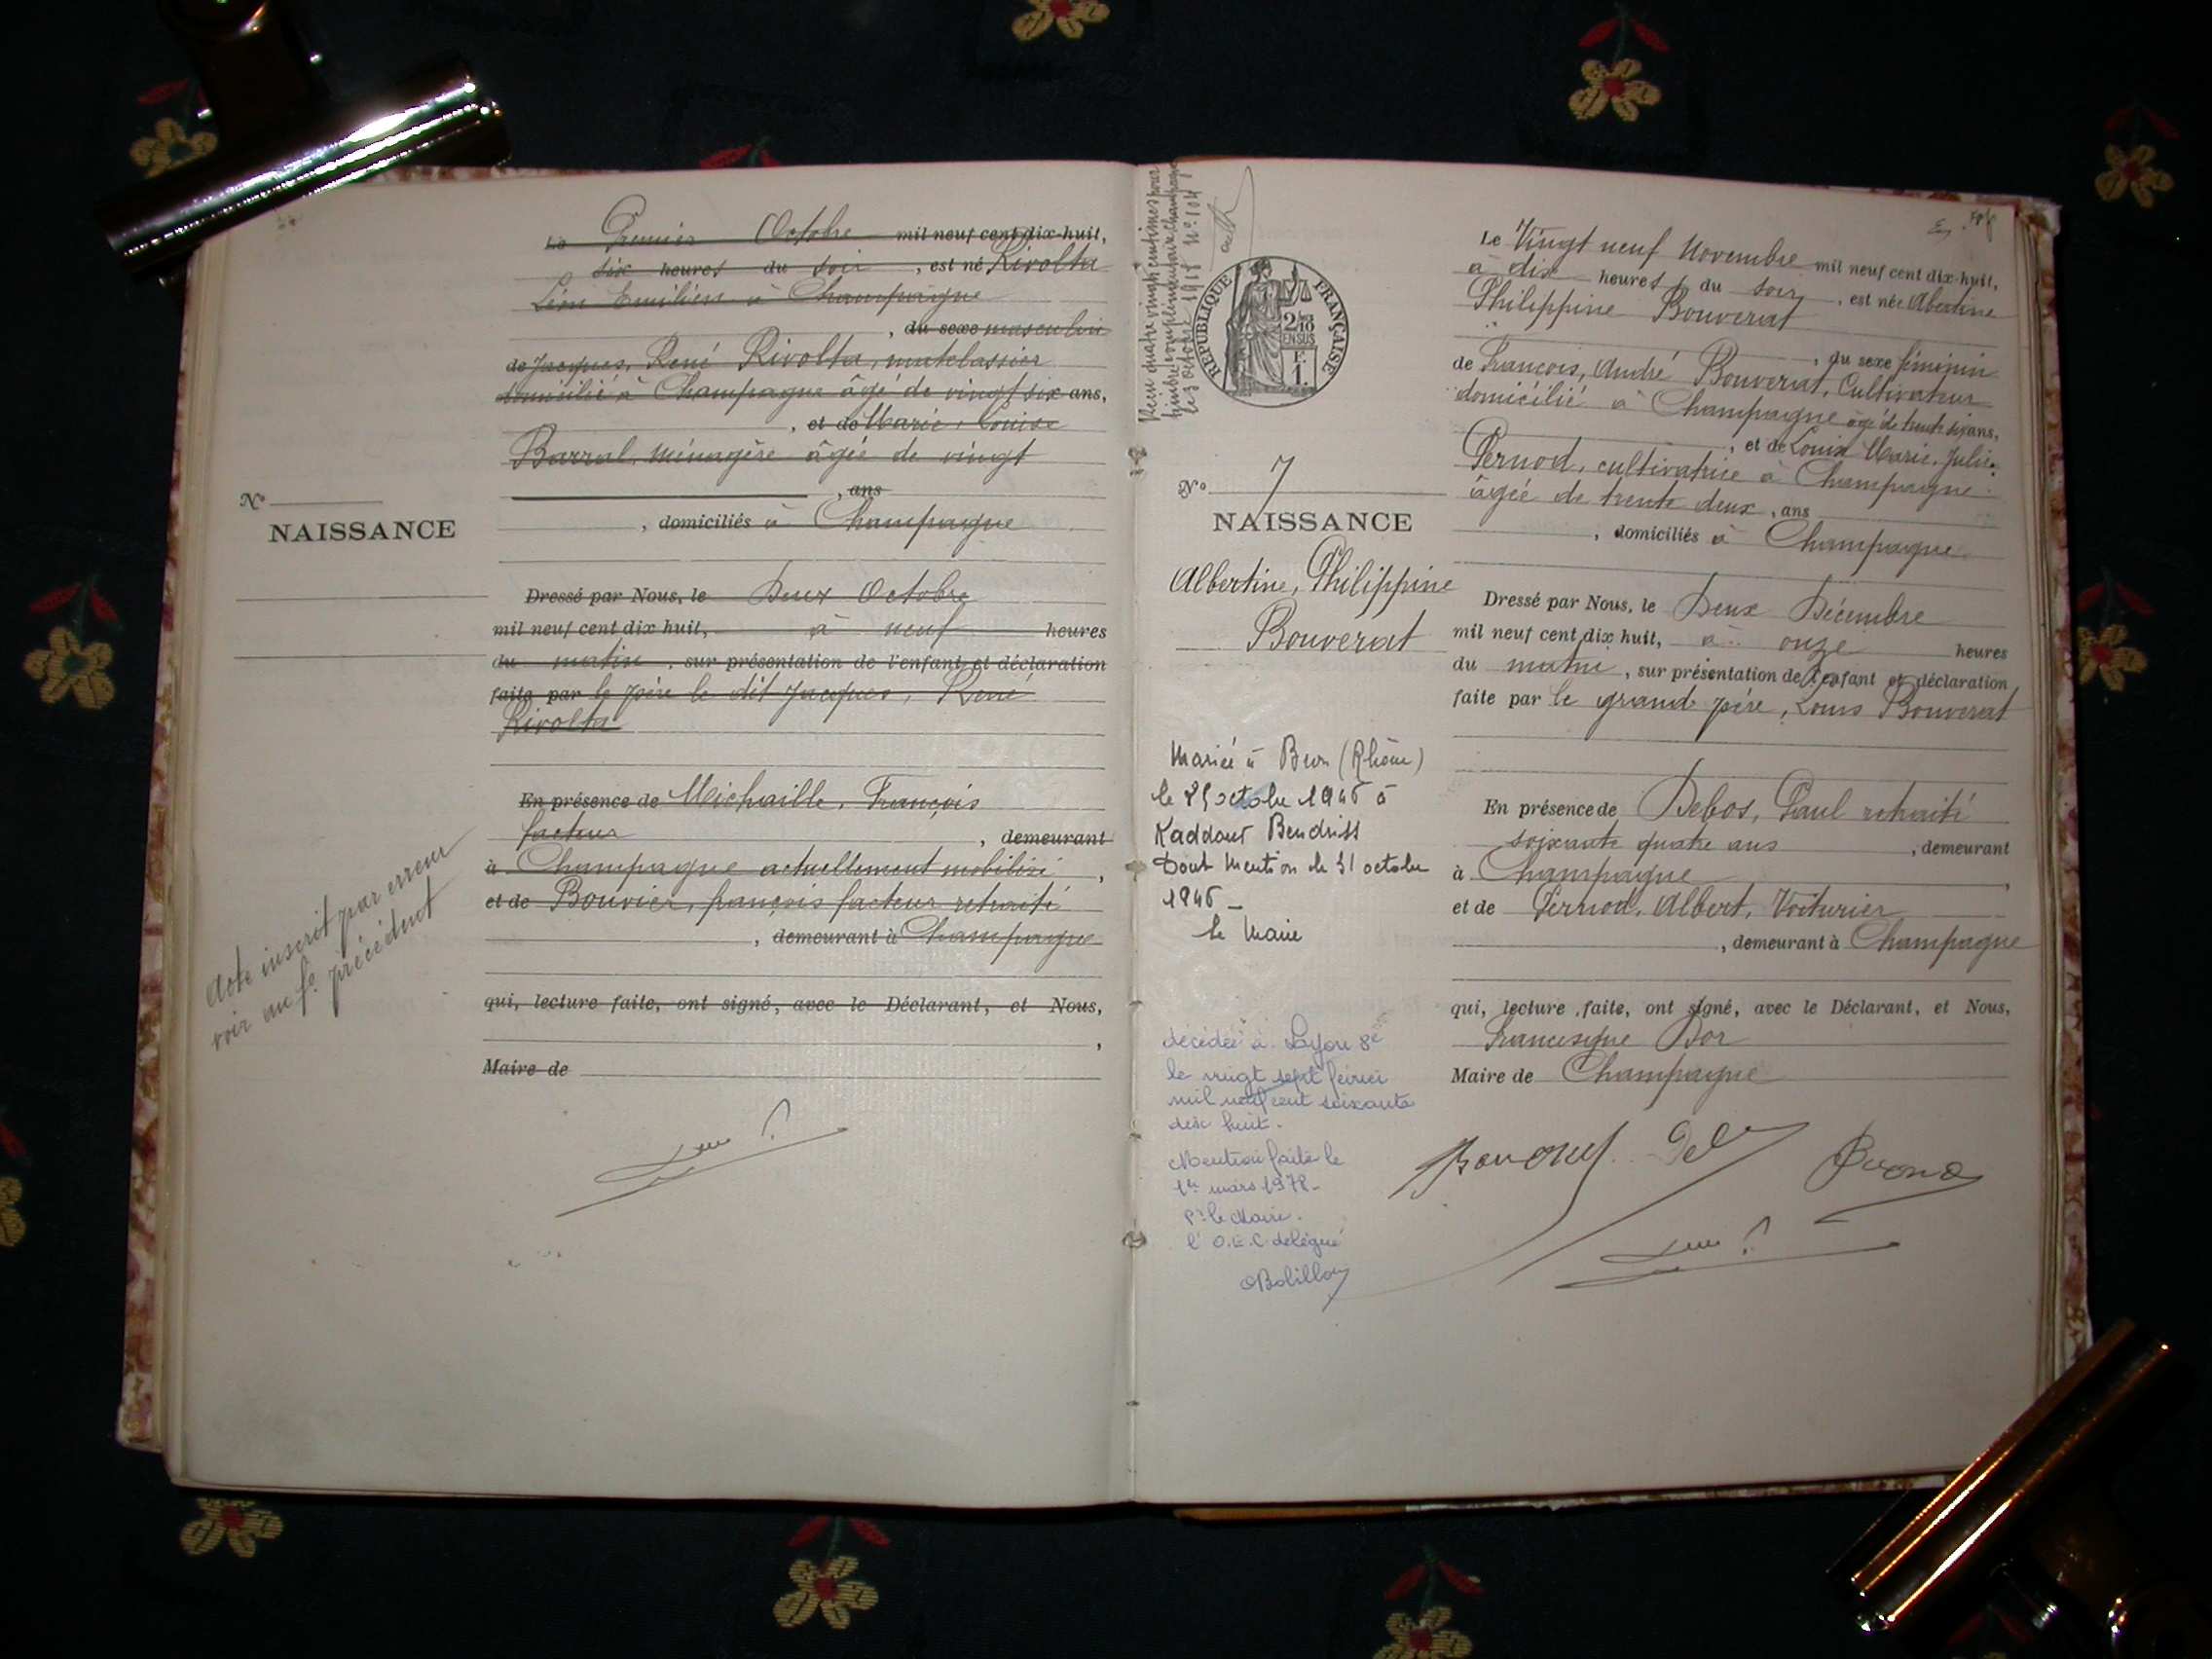 Le Premier Octobre mil neuf cent dix-huit,
six heures du soir, est né Rivolta
Léon Emilien à Champagne
, du sexe masculin
de Jacques, René Rivolta, matelassier
domicilié à Champagne âgé de vingt six ans,
, et de Marie, Louise
Barral, Ménagère âgée de vingt
, ans
, domiciliés à Champagne
N°
NAISSANCE
Dressé par Nous, le Deux Octobre
mil neuf cent dix huit, à neuf heures
du matin, sur présentation de l'enfant et déclaration
faite par le père le dit Jacques, René
Rivolta
En présence de Michaille, François
facteur, demeurant
à Champagne actuellement mobilisé,
et de Bouvier, françois facteur retraité
, demeurant à Champagne
qui, lecture faite, ont signé, avec le Déclarant, et Nous,
,
Maire de
Acte inscrit par erreur
voir au f° précédent
Reçu quatre vingts centimes pour
timbre complémentaire Champagne
le 3 octobre 1918 N° 104
REPUBLIQUE FRANÇAISE
2/10
EN SUS
F.
1.
N° 7
NAISSANCE
Albertine, Philippine
Bouverat
Mariée à Bron (Rhône)
octobre 1946 à
Kaddour
Dont Mention le 31 octobre
1946 _
le Maire
décédée à Lyon 8e
le vingt sept février
mil neuf cent soixante
dix huit.
Mention faite le
1er mars 1978 -
Pr le Maire.
l'O.E.C délégué
Le Vingt neuf Novembre mil neuf cent dix-huit,
à dix heures du soir, est née Albertine
Philippine Bouverat
, du sexe féminin
de François, André Bouverat, Cultivateur
domicilié à Champagne âgé de trente six ans,
, et de Louise Marie, Julie
Pernod, cultivatrice à Champagne
âgée de trente deux, ans
, domiciliés à Champagne
Dressé par Nous, le Deux Décembre
mil neuf cent dix huit, à onze heures
du matin, sur présentation de l'enfant et déclaration
faite par le grand père, Louis Bouverat
En présence de Debos, Paul retraité
soixante quatre ans, demeurant
à Champagne,
et de Pernod, Albert, Voiturier
, demeurant à Champagne
qui, lecture faite, ont signé, avec le Déclarant, et Nous,
Francisque Bor
Maire de Champagne